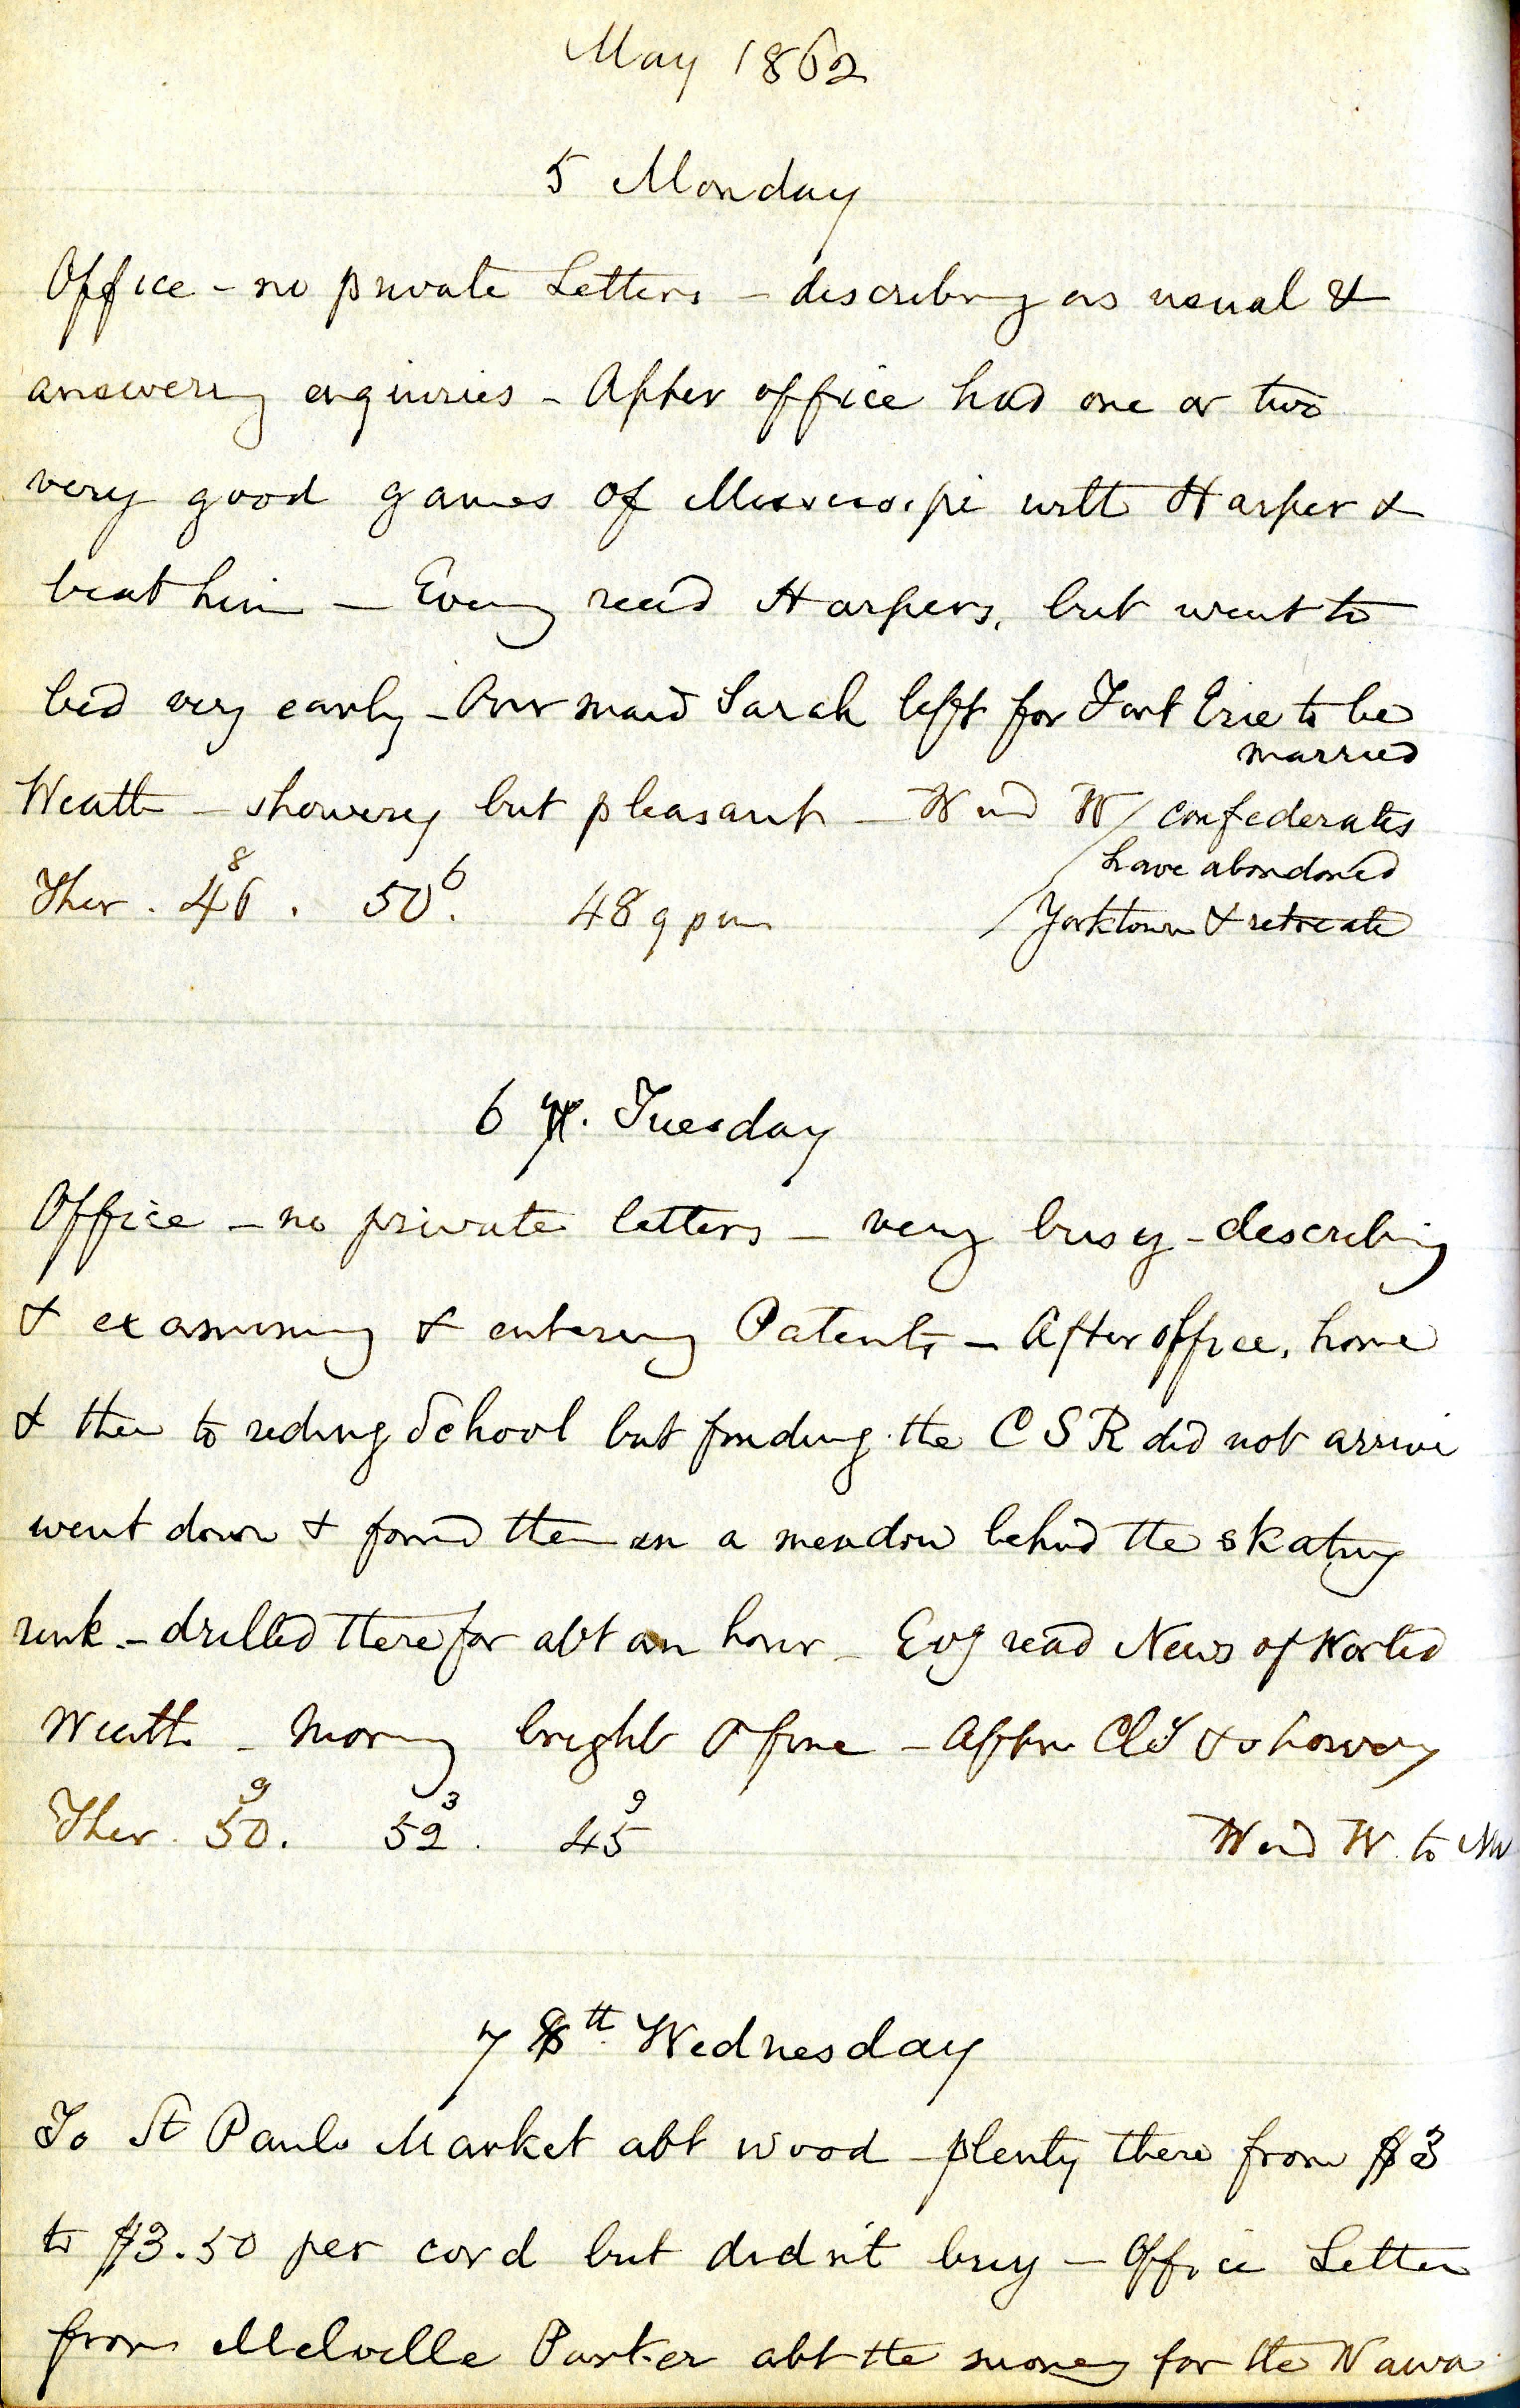 May 1862
5 Monday
Office - no private Letters - describing as usual &
answering enquiries - After office had one or two
very good games of Mississipi with Harper &
beat him - Eveng read Harpers, but went to
bed very early - Our maid Sarah left for Fort Erie to be
married
Weath - showery but pleasant - Wind W / confederates
have abandoned
Yorktown & retreated
Ther. 46 8. 50 6. 48 9 pm
6 Tuesday
Office - no private letters - very busy - describing
& examining & entering Patents - After office, home
& then to riding School but finding the C S R did not arrive
went down & found them in a meadow behind the skating
rink - drilled there for abt an hour - Evg read News of World
Weath - Morng bright & fine - Aftn Cld & showery
Ther. 50 9. 52 3. 45 9 Wind W. to NW
7 th Wednesday
To St Pauls Market abt wood - plenty there from $3
to $3.50 per cord but didn't buy - Office Letter
from Melville Parker abt the money for the Nawa